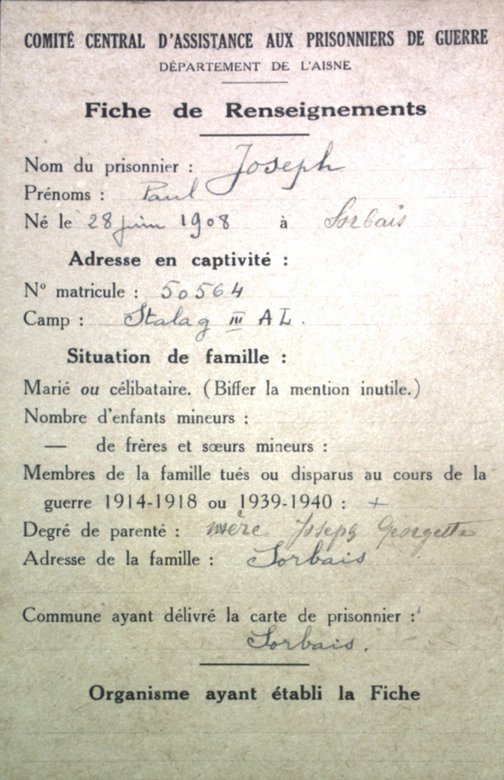 COMITÉ CENTRAL D'ASSISTANCE AUX PRISONNIERS DE GUERRE
DÉPARTEMENT DE L'AISNE
Fiche de Renseignements
Nom du prisonnier : Joseph
Prénoms : Paul
Né le 28 juin 1908 à Sorbais
Adresse en captivité :
N° matricule : 50564
Camp : Stalag III AL.
Situation de famille :
Marié ou célibataire. (Biffer la mention inutile.)
Nombre d'enfants mineurs :
— de frères et sœurs mineurs :
Membres de la famille tués ou disparus au cours de la
guerre 1914-1918 ou 1939-1940 : +
Degré de parenté : mère Joseph Georgette
Adresse de la famille : Sorbais
Commune ayant délivré la carte de prisonnier :
Sorbais.
Organisme ayant établi la Fiche